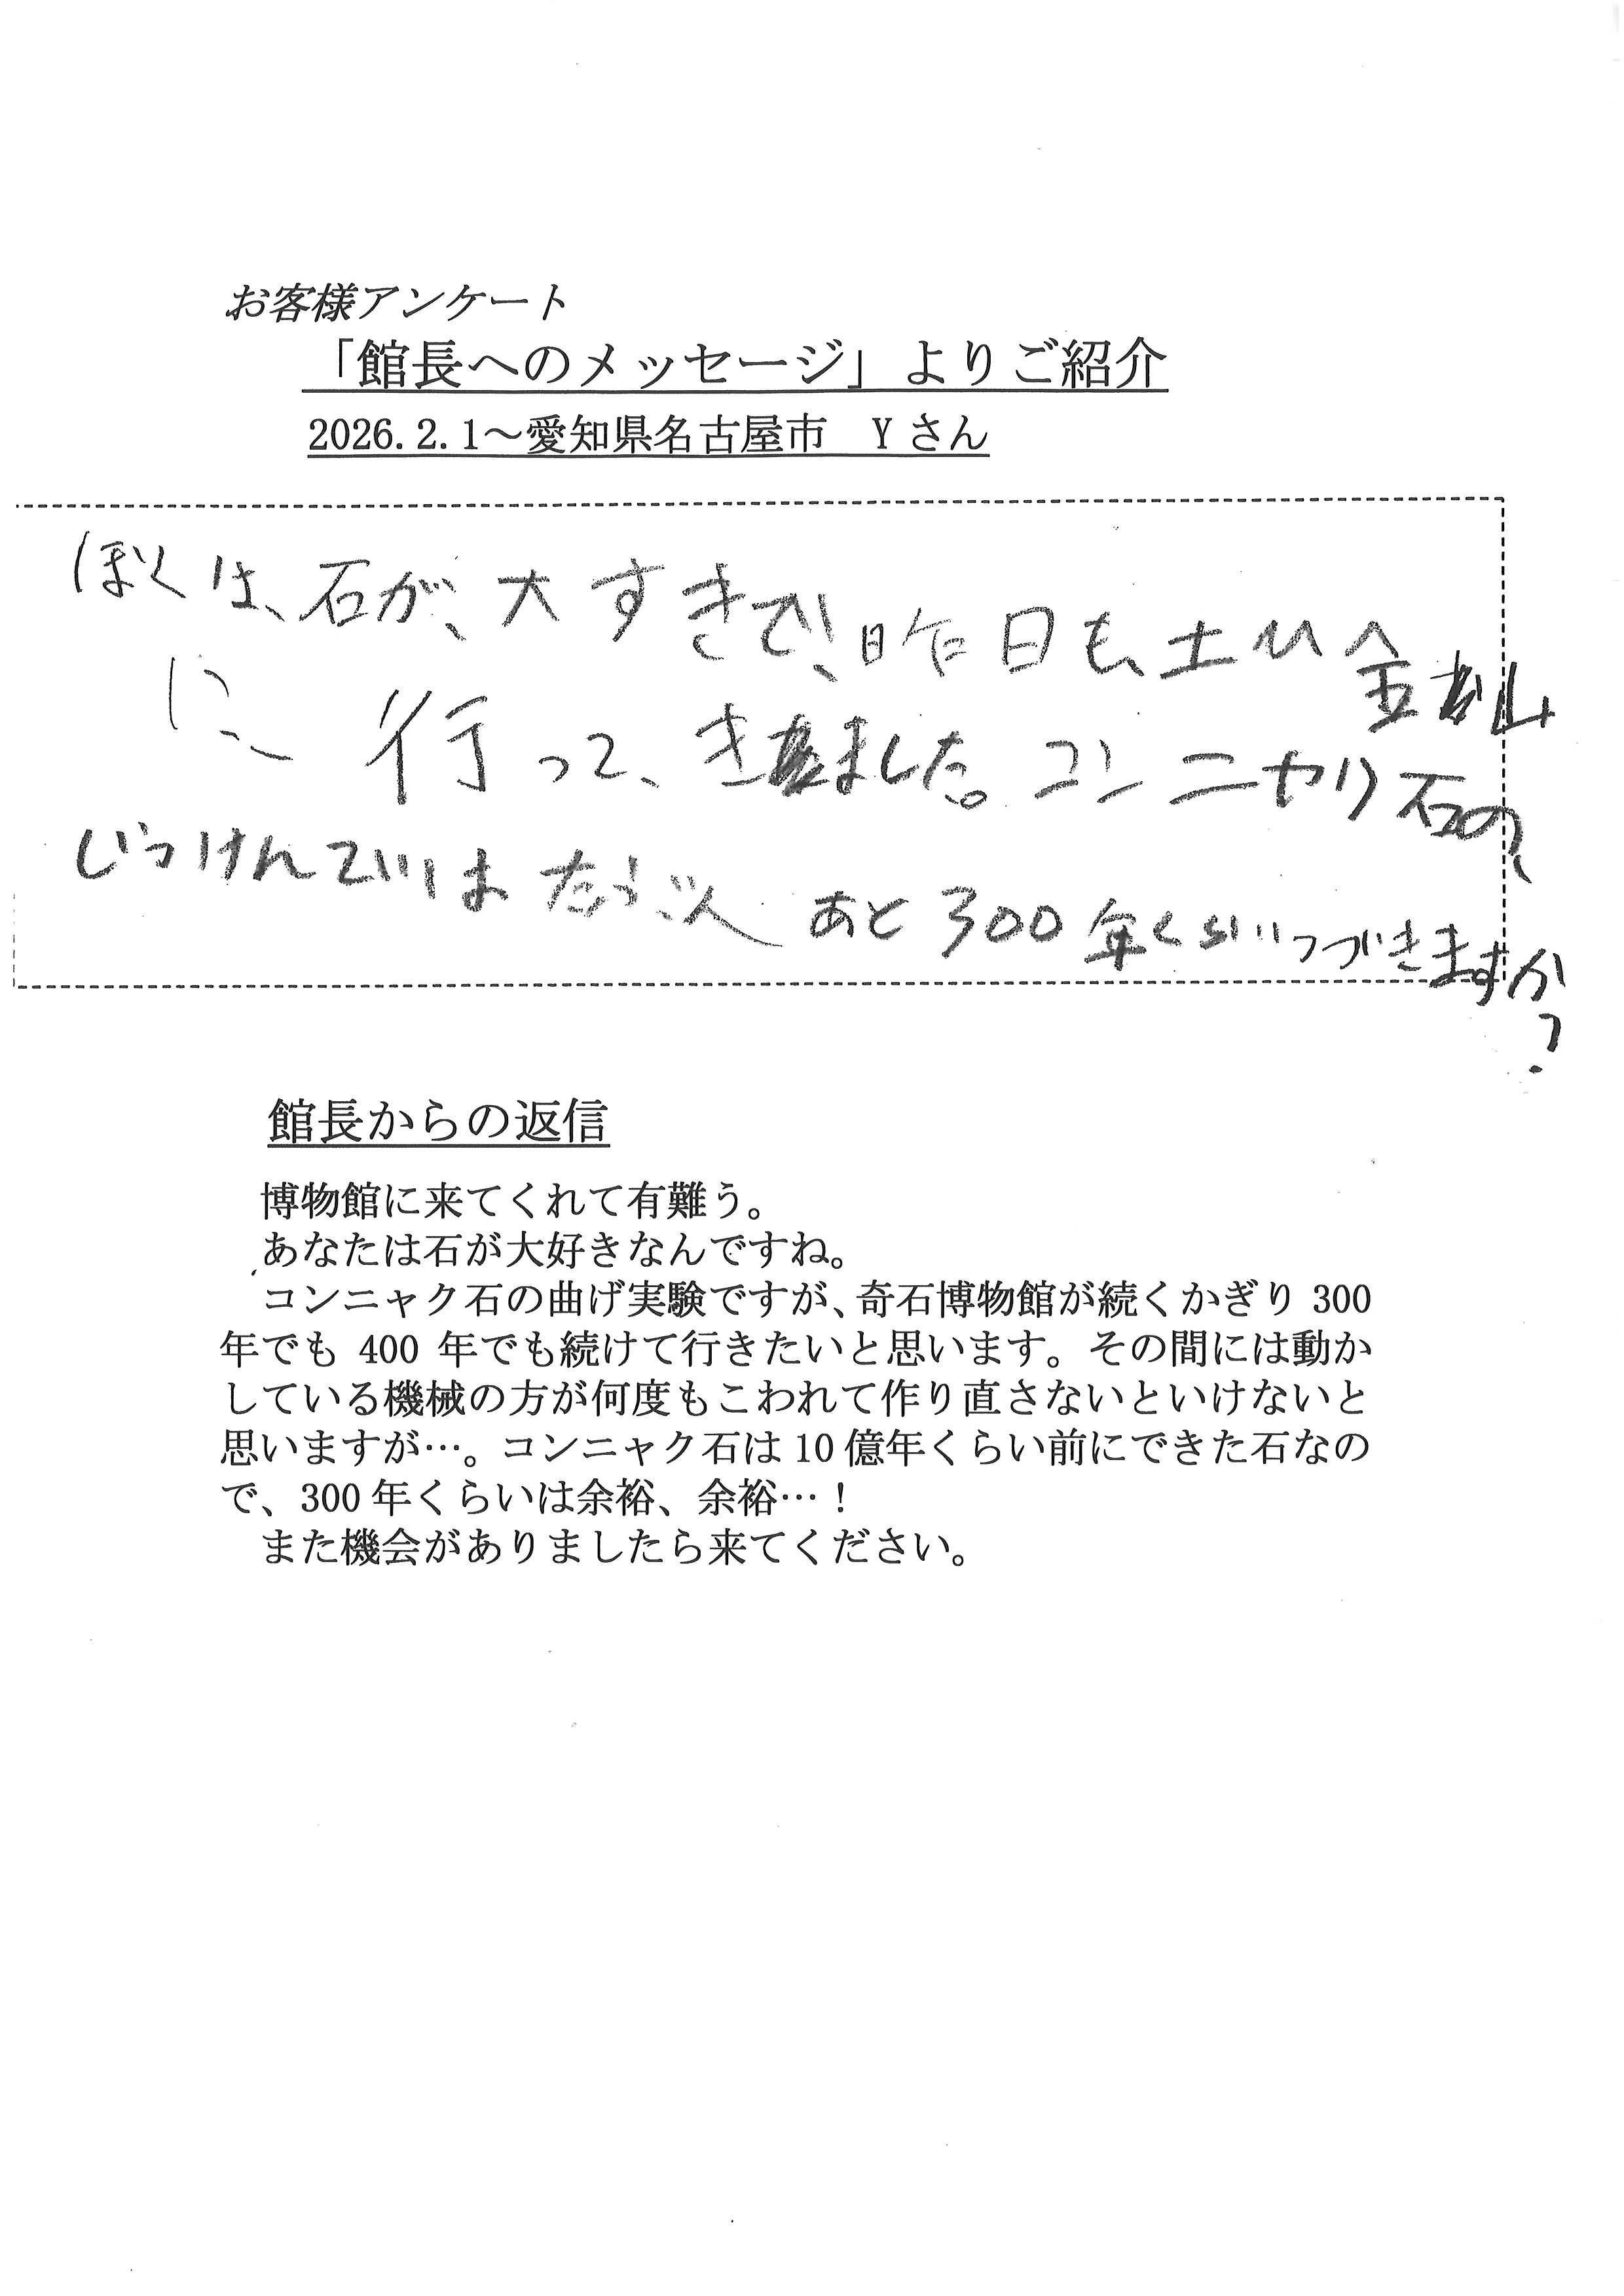 お客様アンケート
「館長へのメッセージ」よりご紹介
2026.2.1～愛知県名古屋市　Yさん
ぼくは、石が、大すきで、昨日も、土ひ金山
に 行って、きました。コンニャク石の、
じっけんでいは たぶん あと300年くらいつづきますか
?
館長からの返信
博物館に来てくれて有難う。
あなたは石が大好きなんですね。
コンニャク石の曲げ実験ですが、奇石博物館が続くかぎり 300
年でも 400 年でも続けて行きたいと思います。その間には動か
している機械の方が何度もこわれて作り直さないといけないと
思いますが…。コンニャク石は 10 億年くらい前にできた石なの
で、300 年くらいは余裕、余裕…！
また機会がありましたら来てください。